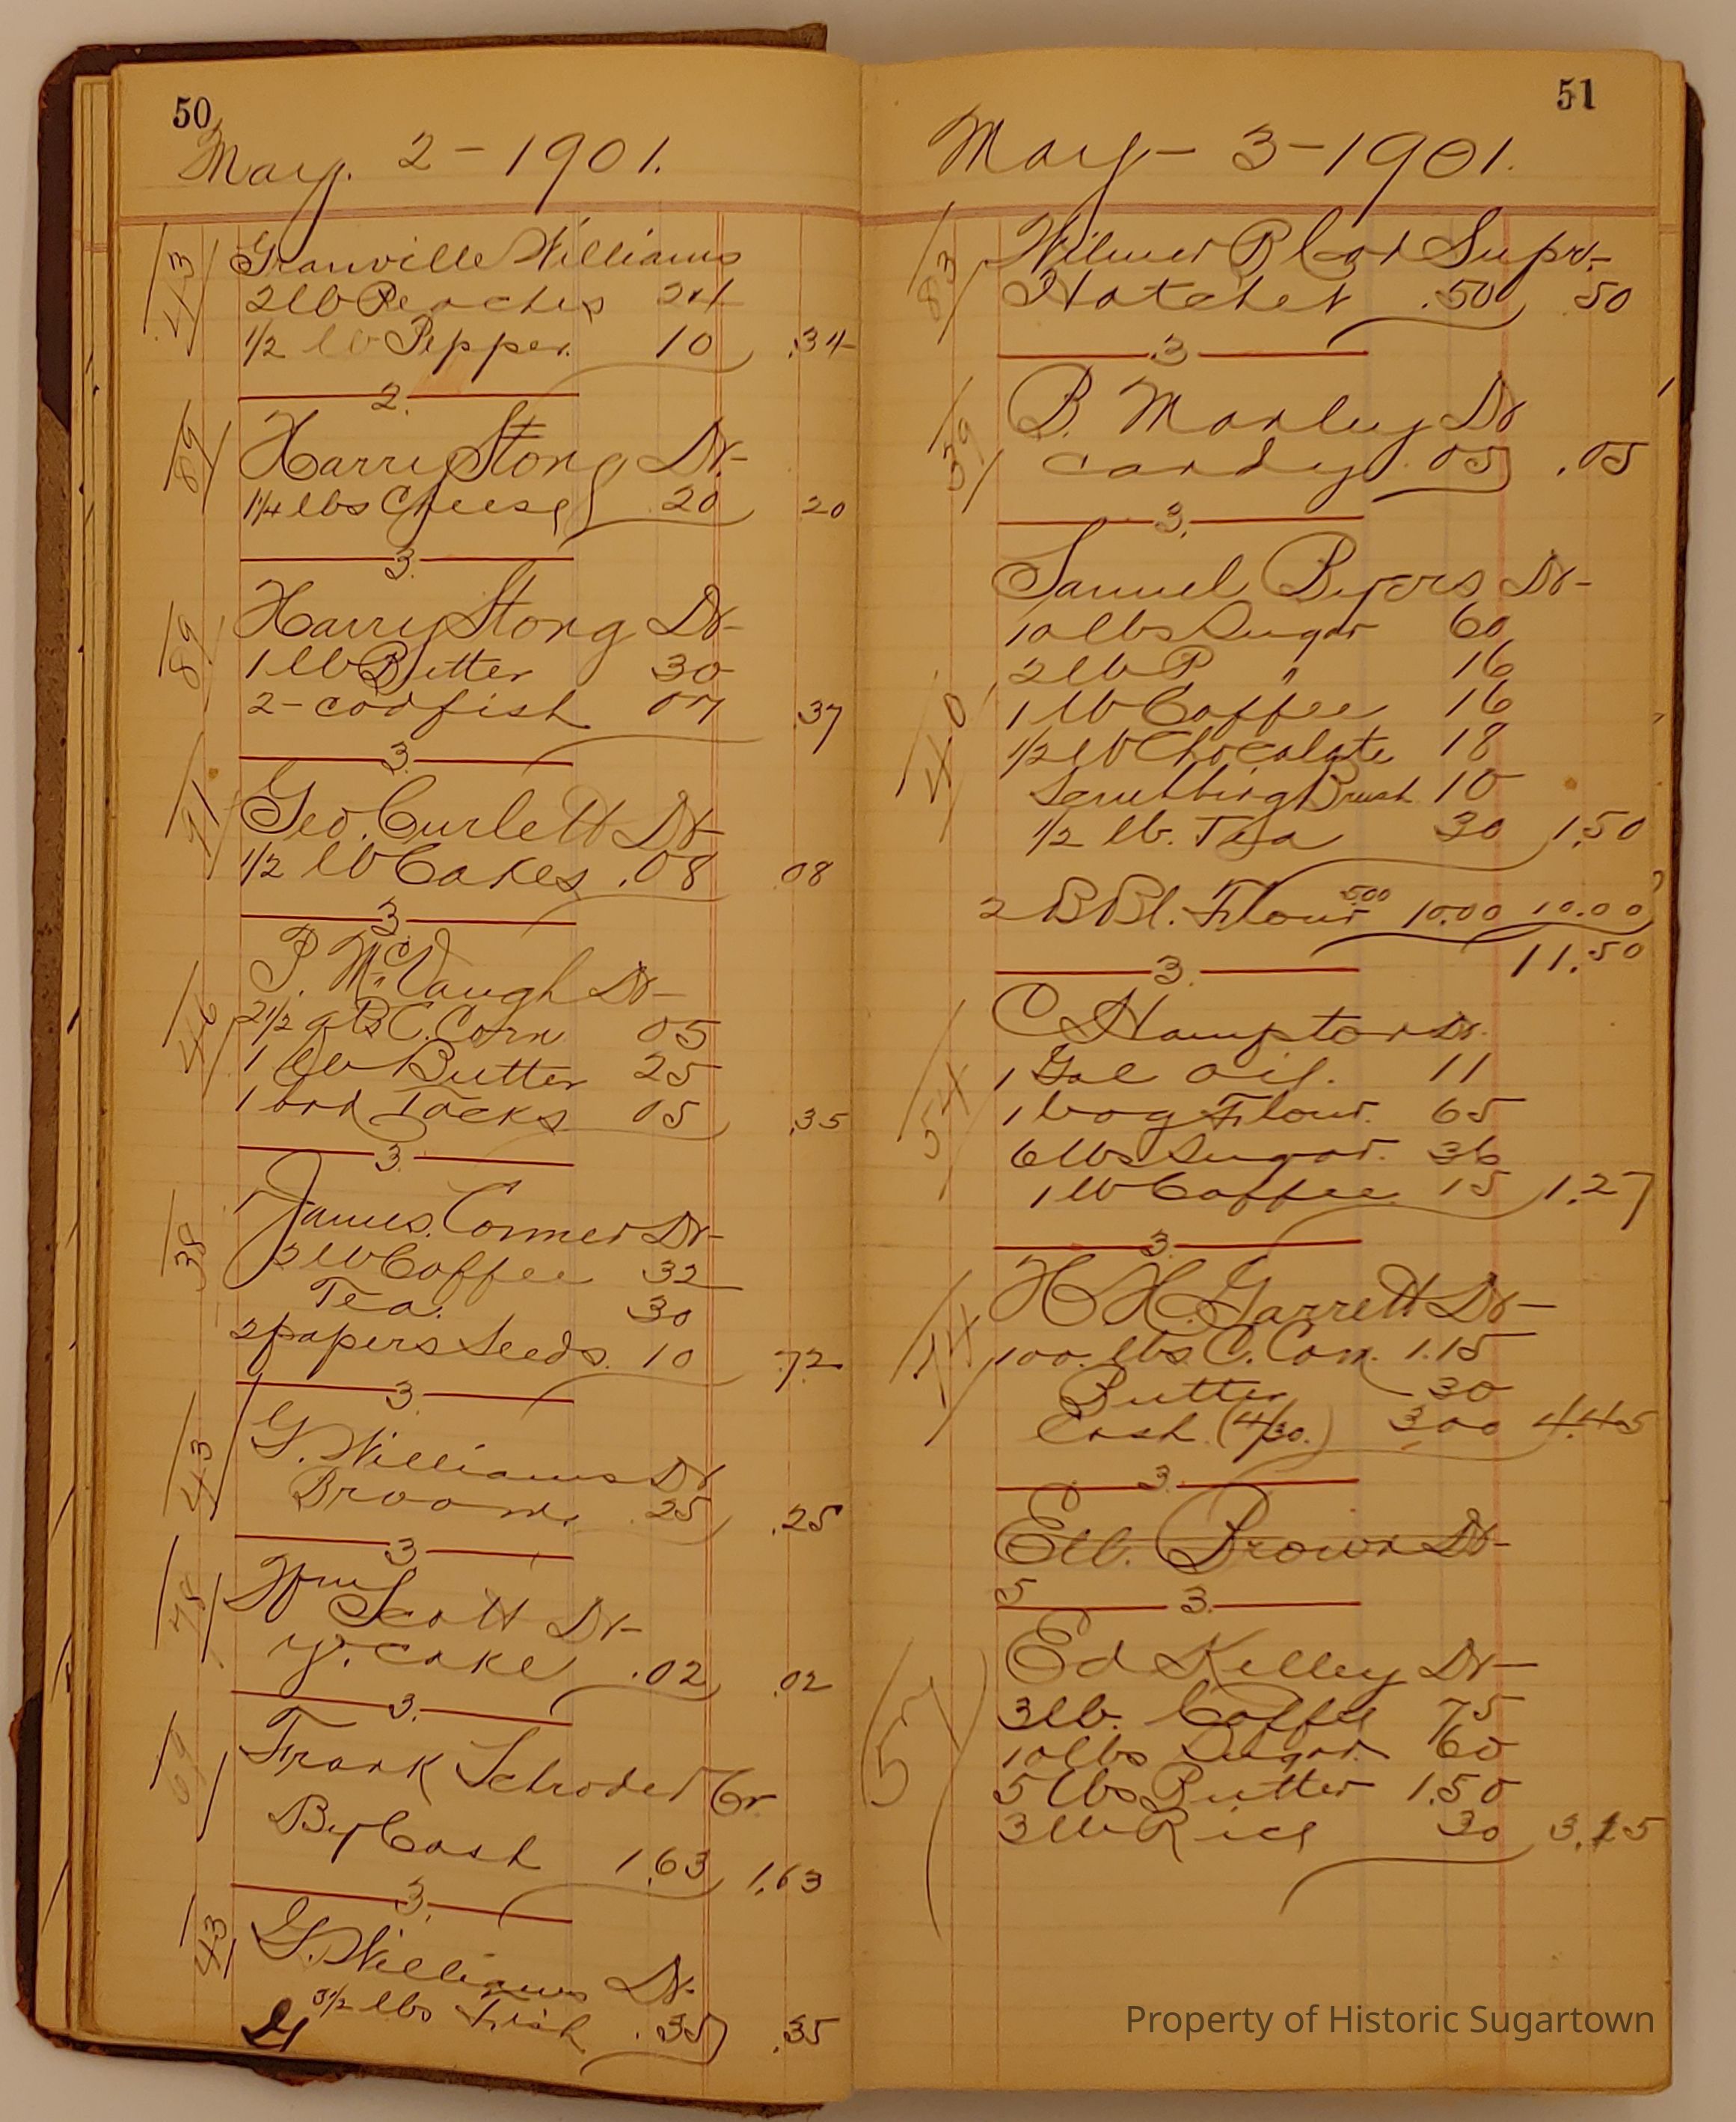 50
May. 2 - 1901.
43
Granville Williams
2 lb Peaches 24
1/2 lb Pepper. 10 .34
2.
89
Harry Stong Dr-
1 1/4 lbs Cheese 20 20
3.
89
Harry Stong Dr-
1 lb Butter 30
2 - codfish 07 .37
3.
91
Geo. Curlett Dr-
1/2 lb Cakes .08 .08
3
46
P. McVaugh Dr-
2 1/2 qts C. Corn 05
1 lb Butter 25
1 Tacks 05 .35
3.
38
James. Conner Dr-
2 lb Coffee 32
Tea. 30
2 papers Seeds. 10 .72
3.
43
G. Williams Dr
Broom. .25 .25
3
78
Wm Scott Dr-
Y. cake .02 .02
3.
69
Frank Schroder Cr
By Cash 1.63 1.63
3.
43
G. Williams Dr.
3 1/2 lbs Fish .35 .35
51
May - 3 - 1901.
83
Wilmer Supr.
Hatchet .50 .50
3
39
B. Manley Dr
candy .05 .05
3.
Samuel Byers Dr-
10 lbs Sugar 60
2 lb P " 16
40
1 lb Coffee 16
1/2 lb Chocolate 18
Scrubbing Brush 10
1/2 lb. Tea 30 1.50
2 BBl. Flour 500 10.00 10.00
11.50
3.
54
C Hampton Dr.
1 Gal oil. 11
1 bag Flour. 65
6 lbs Sugar. 36
1 lb Coffee 15 1.27
3.
14
H H. Garrett Dr-
100. lbs. C. Corn. 1.15
Butter 30
Cash (4/30.) 300 4.45
3.
Ell. Brown Dr-
5
3.
57
Ed Kelley Dr-
3 lb. Coffee 75
10 lbs Sugar 60
5 lbs Butter 1.50
3 lb Rice 30 3.15
Property of Historic Sugartown